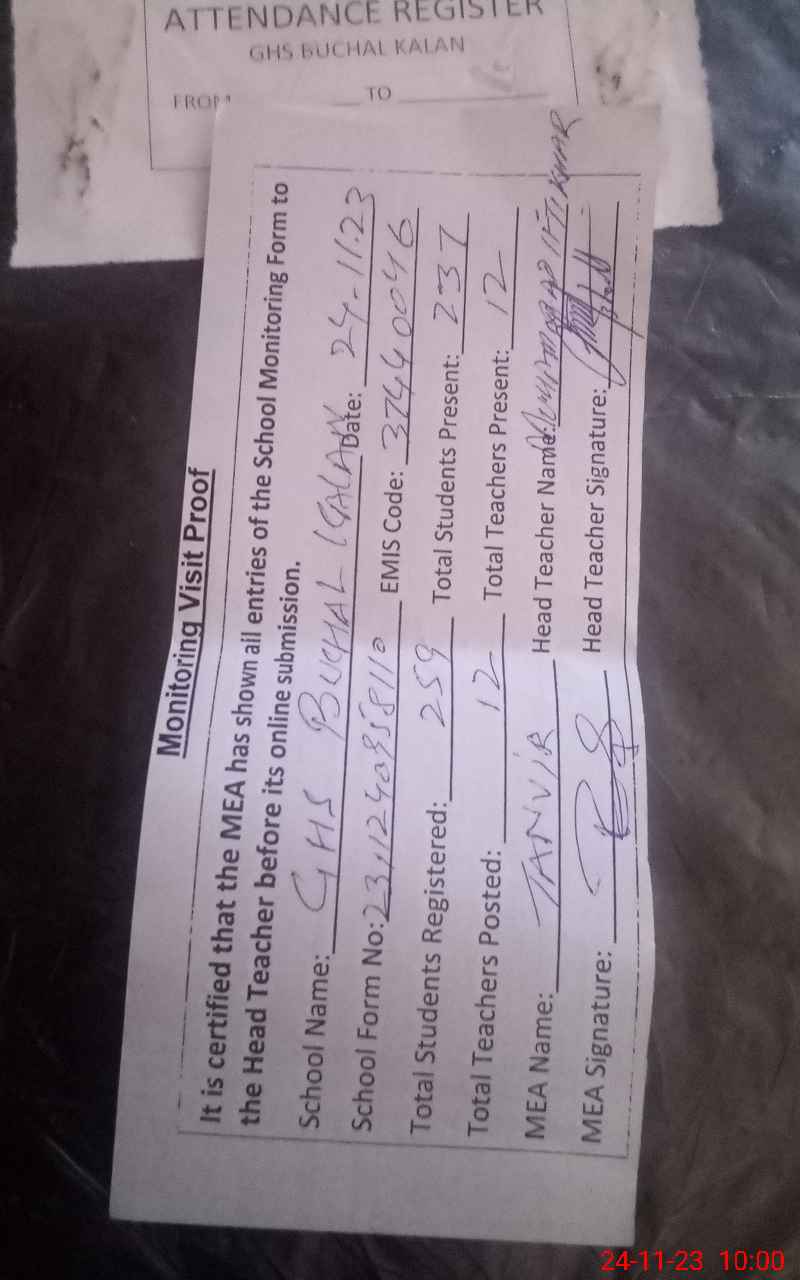 ATTENDANCE REGISTER
GHS BUCHAL KALAN
FROM TO
Monitoring Visit Proof
It is certified that the MEA has shown all entries of the School Monitoring Form to
the Head Teacher before its online submission.
School Name: GHS BUCHAL KALAN Date: 24-11-23
School Form No: EMIS Code: 37440046
Total Students Registered: 259 Total Students Present: 237
Total Teachers Posted: 12 Total Teachers Present: 12
MEA Name: TANVIR Head Teacher Name:
MEA Signature: Head Teacher Signature:
24-11-23 10:00